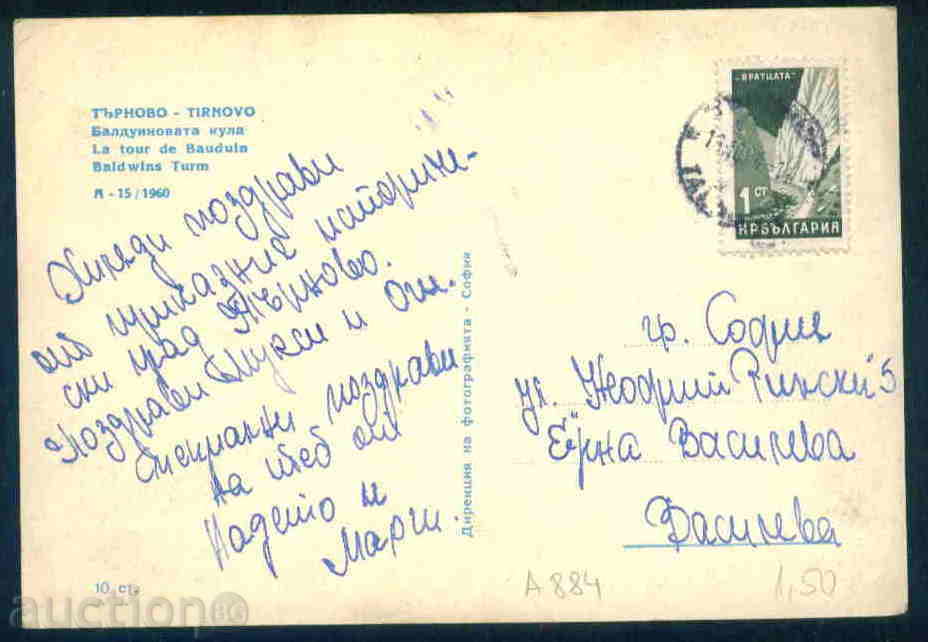 ТЪРНОВО - TIRNOVO
Балдуиновата кула
La tour de Bauduin
Baldwins Turm
Я - 15 / 1960
Хиляди поздрави
от приказния историче-
ски град Търново.
Поздрави и
Специални поздрави
на теб от
Надето и
Марги.
10 ст.
Дирекция на фотографията - София
"ВРАТЦАТА"
1 СТ
НРБЪЛГАРИЯ
гр. София
ул.
Василева
Василева
A 884
1,50
auction